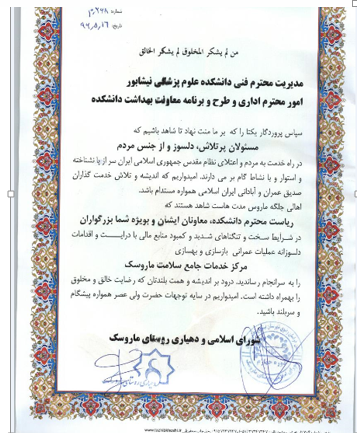 شماره ۲۶۸/م
تاریخ ۹۶,۵,۱۶
من لم یشکر المخلوق لم یشکر الخالق
مدیریت محترم فنی دانشکده علوم پزشکی نیشابور
امور محترم اداری و طرح و برنامه معاونت بهداشت دانشکده
سپاس پروردگار یکتا را که بر ما منت نهاد تا شاهد باشیم که
مسئولان پرتلاش، دلسوز و از جنس مردم
در راه خدمت به مردم و اعتلای نظام مقدس جمهوری اسلامی ایران سر از پا نشناخته
و استوار و با نشاط گام بر می دارند. امیدواریم که اندیشه و تلاش خدمت گذاران
صدیق عمران و آبادانی ایران اسلامی همواره مستدام باشد.
اهالی جلگه ماروس مدت هاست شاهد هستند که
ریاست محترم دانشکده، معاونتان ایشان و بویژه شما بزرگواران
در شرایط سخت و تنگناهای شدید و کمبود منابع مالی با درایت و اقدامات
دلسوزانه عملیات عمرانی بازسازی و بهسازی
مرکز خدمات جامع سلامت ماروسک
را به سرانجام رساندید. درود بر اندیشه و همت بلندتان که رضایت خالق و مخلوق
را بهمراه داشته است. امیدواریم در سایه توجهات حضرت ولی عصر همواره پیشگام
و سربلند باشید.
شورای اسلامی و دهیاری روستای ماروسک